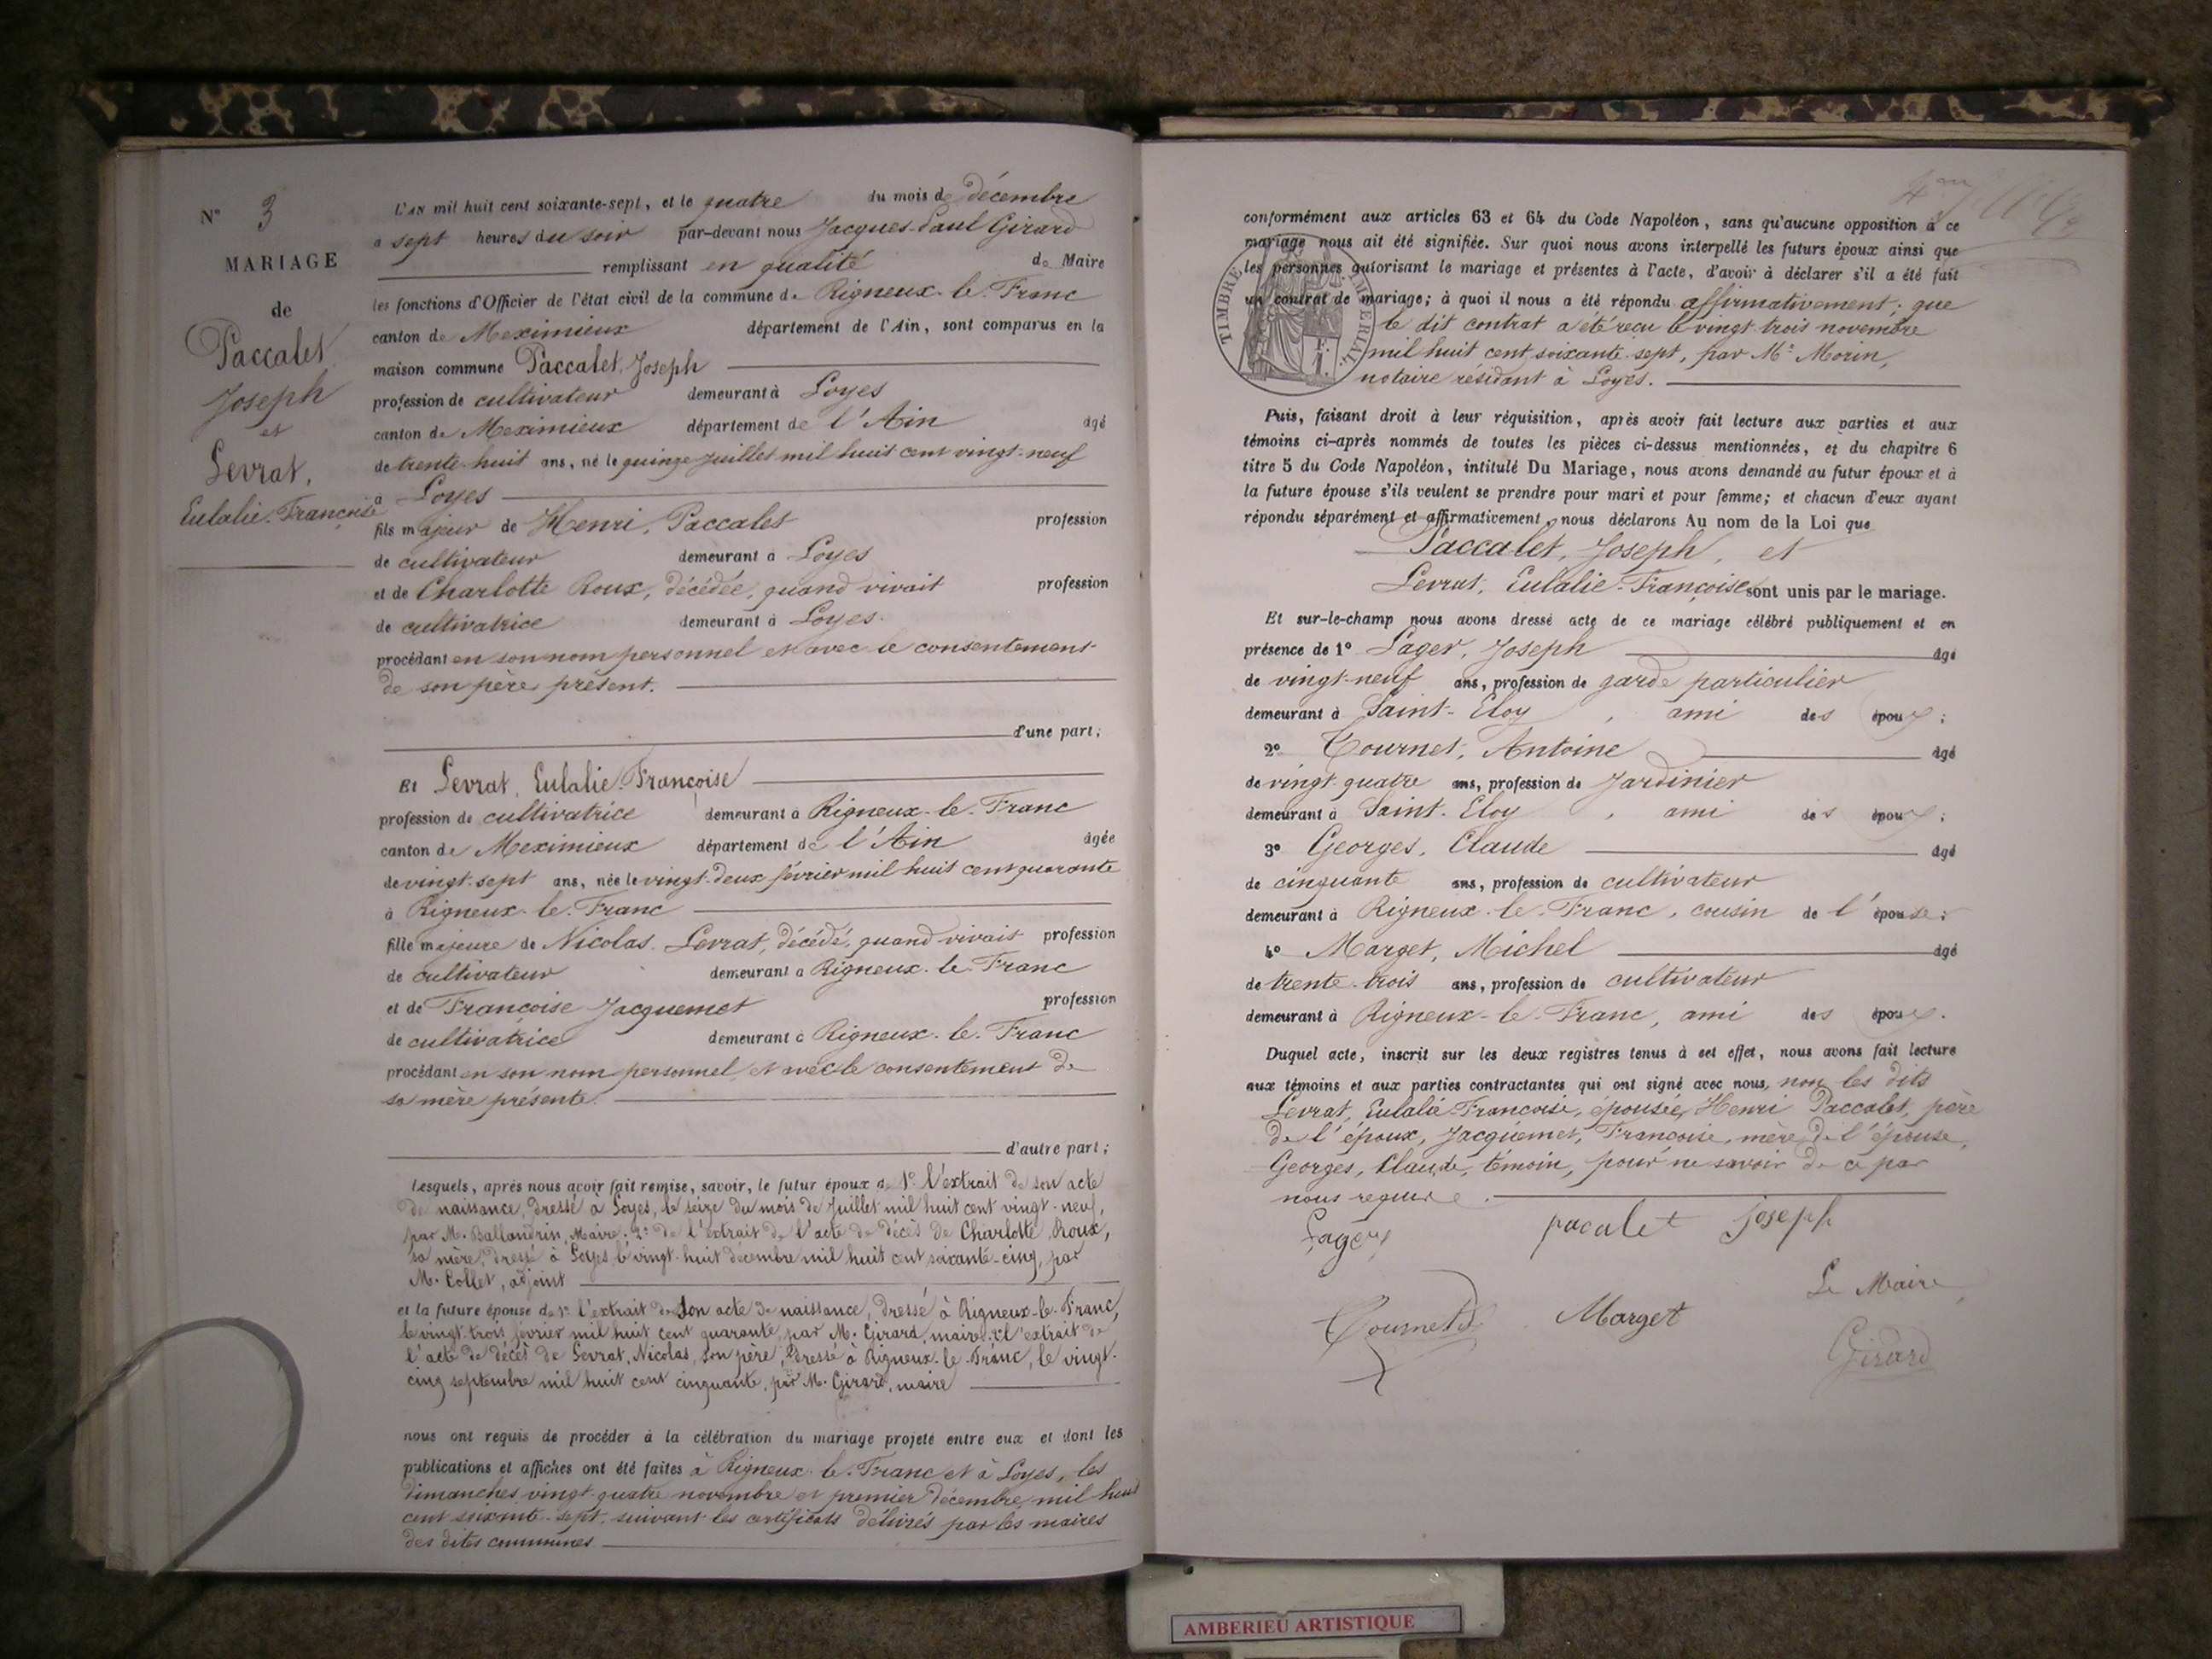 N° 3
MARIAGE
de
Paccalet
Joseph
et
Levrat,
Eulalie-Françoise
L'AN mil huit cent soixante-sept, et le quatre du mois de décembre
à sept heures du soir par-devant nous Jacques-Paul Girard
remplissant en qualité de Maire
les fonctions d'Officier de l'état civil de la commune de Rigneux-le-Franc
canton de Meximieux département de l'Ain, sont comparus en la
maison commune Paccalet, Joseph
profession de cultivateur demeurant à Loyes
canton de Meximieux département de l'Ain âgé
de trente-huit ans, né le quinze juillet mil huit cent vingt-neuf
à Loyes
fils majeur de Henri, Paccalet profession
de cultivateur demeurant à Loyes
et de Charlotte Roux, décédée, quand vivait profession
de cultivatrice demeurant à Loyes.
procédant en son nom personnel et avec le consentement
de son père présent.
d'une part;
Et Levrat, Eulalie-Françoise
profession de cultivatrice demeurant à Rigneux-le-Franc
canton de Meximieux département de l'Ain âgée
de vingt-sept ans, née le vingt-deux février mil huit cent quarante
à Rigneux-le-Franc
fille majeure de Nicolas Levrat, décédé, quand vivait profession
de cultivateur demeurant à Rigneux-le-Franc
et de Françoise Jacquemet profession
de cultivatrice demeurant à Rigneux-le-Franc
procédant en son nom personnel et avec le consentement de
sa mère présente.
d'autre part;
Lesquels, après nous avoir fait remise, savoir, le futur époux de 1° l'extrait de son acte
de naissance, dressé à Loyes, le seize du mois de juillet mil huit cent vingt-neuf,
par M. Ballandrin, Maire; 2° de l'extrait de l'acte de décès de Charlotte Roux,
sa mère, dressé à Loyes le vingt-huit décembre mil huit cent soixante-cinq, par
M. Collet, adjoint
et la future épouse de 1° l'extrait de son acte de naissance, dressé à Rigneux-le-Franc,
le vingt-trois février mil huit cent quarante, par M. Girard, maire; 2° l'extrait de
l'acte de décès de Levrat, Nicolas, son père, dressé à Rigneux-le-Franc, le vingt-
cinq septembre mil huit cent cinquante, par M. Girard, maire
nous ont requis de procéder à la célébration du mariage projeté entre eux et dont les
publications et affiches ont été faites à Rigneux-le-Franc et à Loyes, les
dimanches vingt-quatre novembre et premier décembre mil huit
cent soixante-sept, suivant les certificats délivrés par les maires
des dites communes
conformément aux articles 63 et 64 du Code Napoléon, sans qu'aucune opposition à ce
mariage nous ait été signifiée. Sur quoi nous avons interpellé les futurs époux ainsi que
les personnes autorisant le mariage et présentes à l'acte, d'avoir à déclarer s'il a été fait
un contrat de mariage; à quoi il nous a été répondu affirmativement; que
le dit contrat a été reçu le vingt-trois novembre
mil huit cent soixante-sept, par Me Morin,
notaire résidant à Loyes.
TIMBRE IMPERIAL
Puis, faisant droit à leur réquisition, après avoir fait lecture aux parties et aux
témoins ci-après nommés de toutes les pièces ci-dessus mentionnées, et du chapitre 6
titre 5 du Code Napoléon, intitulé Du Mariage, nous avons demandé au futur époux et à
la future épouse s'ils veulent se prendre pour mari et pour femme; et chacun d'eux ayant
répondu séparément et affirmativement, nous déclarons Au nom de la Loi que
Paccalet, Joseph, et
Levrat, Eulalie-Françoise sont unis par le mariage.
Et sur-le-champ nous avons dressé acte de ce mariage célébré publiquement et en
présence de 1° Lager, Joseph âgé
de vingt-neuf ans, profession de garde particulier
demeurant à Saint-Eloy, ami des époux;
2° Tournet, Antoine âgé
de vingt-quatre ans, profession de Jardinier
demeurant à Saint-Eloy, ami des époux;
3° Georges, Claude âgé
de cinquante ans, profession de cultivateur
demeurant à Rigneux-le-Franc, cousin de l'épouse;
4° Marget, Michel âgé
de trente-trois ans, profession de cultivateur
demeurant à Rigneux-le-Franc, ami des époux.
Duquel acte, inscrit sur les deux registres tenus à cet effet, nous avons fait lecture
aux témoins et aux parties contractantes qui ont signé avec nous, non les dits
Levrat, Eulalie-Françoise, épousée, Henri Paccalet, père
de l'époux, Jacquemet, Françoise, mère de l'épouse,
Georges, Claude, témoin, pour ne savoir de ce par
nous requis.
Lager pacalet Joseph
Le Maire,
Tournet Marget
Girard
AMBERIEU ARTISTIQUE